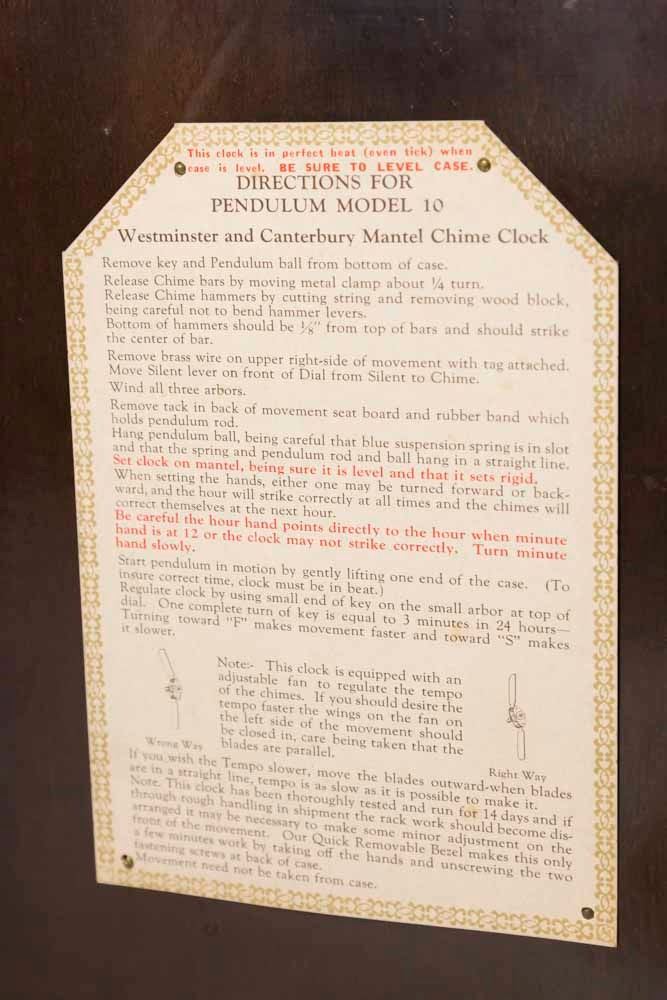 This clock is in perfect beat (even tick) when
case is level. BE SURE TO LEVEL CASE.
DIRECTIONS FOR
PENDULUM MODEL 10
Westminster and Canterbury Mantel Chime Clock
Remove key and Pendulum ball from bottom of case.
Release Chime bars by moving metal clamp about ¼ turn.
Release Chime hammers by cutting string and removing wood block,
being careful not to bend hammer levers.
Bottom of hammers should be ⅛" from top of bars and should strike
the center of bar.
Remove brass wire on upper right-side of movement with tag attached.
Move Silent lever on front of Dial from Silent to Chime.
Wind all three arbors.
Remove tack in back of movement seat board and rubber band which
holds pendulum rod.
Hang pendulum ball, being careful that blue suspension spring is in slot
and that the spring and pendulum rod and ball hang in a straight line.
Set clock on mantel, being sure it is level and that it sets rigid.
When setting the hands, either one may be turned forward or back-
ward, and the hour will strike correctly at all times and the chimes will
correct themselves at the next hour.
Be careful the hour hand points directly to the hour when minute
hand is at 12 or the clock may not strike correctly. Turn minute
hand slowly.
Start pendulum in motion by gently lifting one end of the case. (To
insure correct time, clock must be in beat.)
Regulate clock by using small end of key on the small arbor at top of
dial. One complete turn of key is equal to 3 minutes in 24 hours—
Turning toward "F" makes movement faster and toward "S" makes
it slower.
Note:- This clock is equipped with an
adjustable fan to regulate the tempo
of the chimes. If you should desire the
tempo faster the wings on the fan on
the left side of the movement should
be closed in, care being taken that the
blades are parallel.
Wrong Way
Right Way
If you wish the Tempo slower, move the blades outward-when blades
are in a straight line, tempo is as slow as it is possible to make it.
Note. This clock has been thoroughly tested and run for 14 days and if
through rough handling in shipment the rack work should become dis-
arranged it may be necessary to make some minor adjustment on the
front of the movement. Our Quick Removable Bezel makes this only
a few minutes work by taking off the hands and unscrewing the two
fastening screws at back of case.
Movement need not be taken from case.